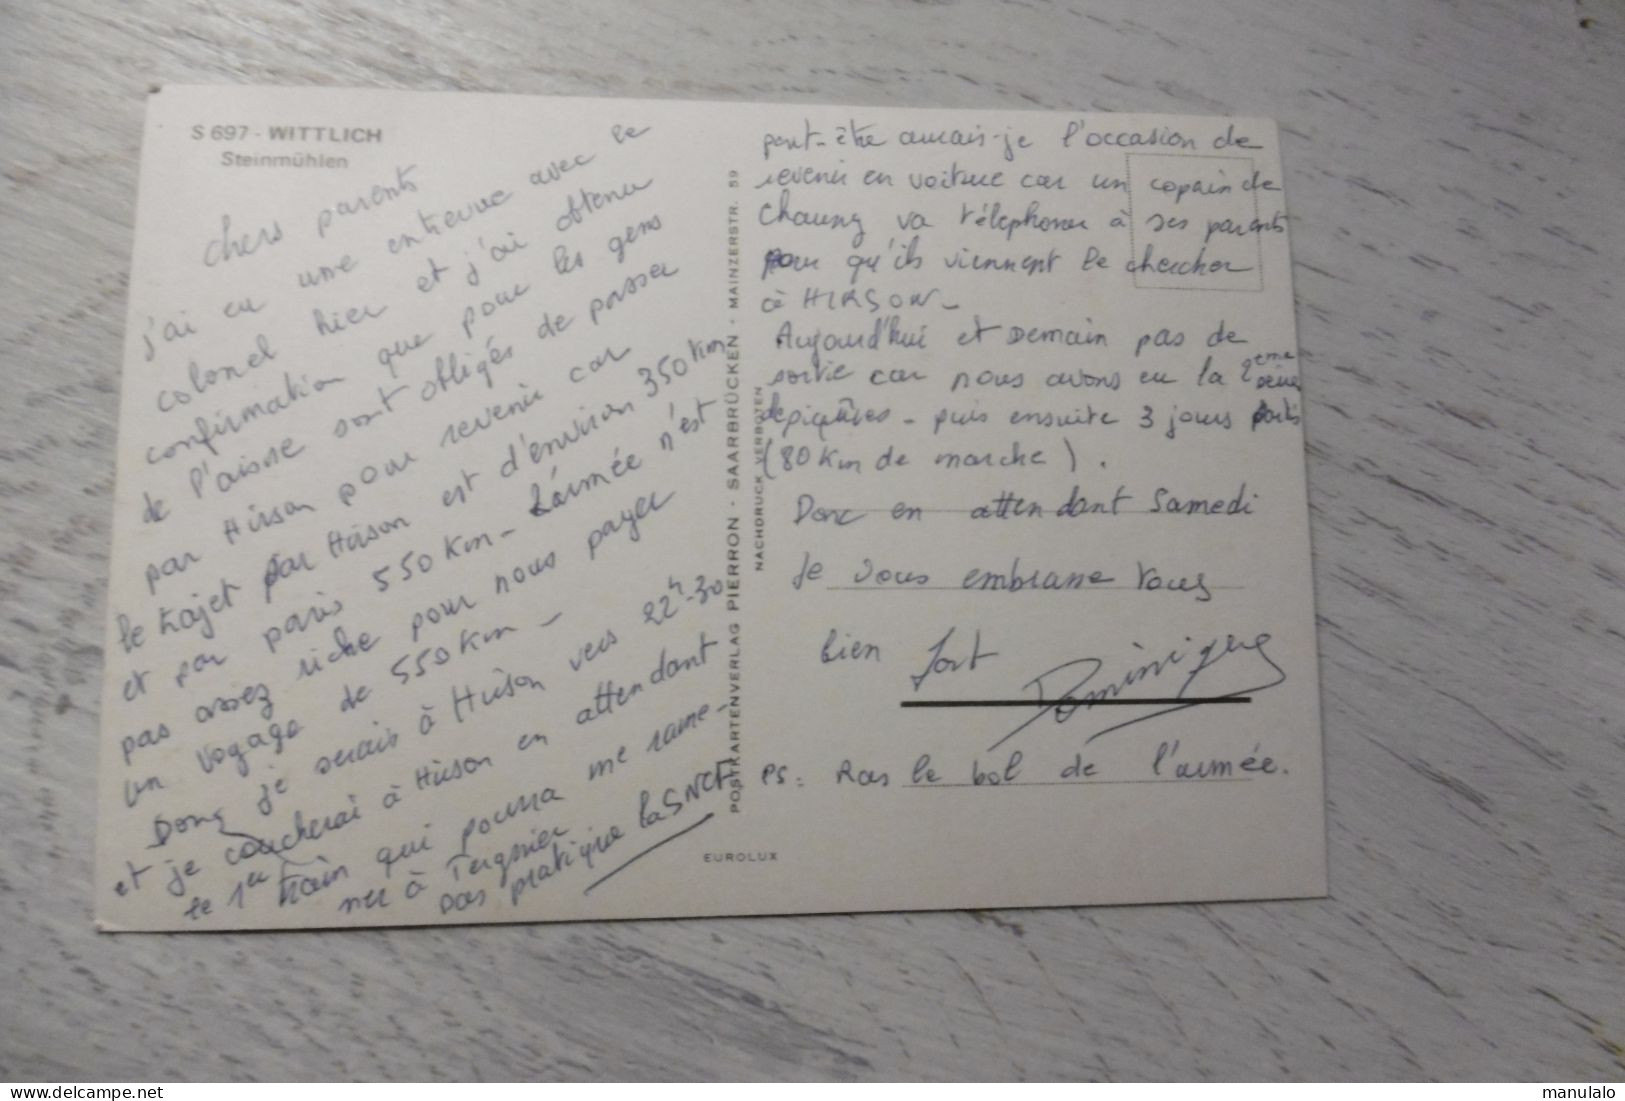 S 697 - WITTLICH
Steinmühlen
chers parents
j'ai eu une entrevue avec le
colonel hier et j'ai obtenu
confirmation que pour les gens
de l'aisne sont obligés de passer
par Hirson pour revenir car
le trajet par Hirson est d'environ 350 km
et par paris 550 km - L'armée n'est
pas assez riche pour nous payer
un voyage de 550 km -
Donc je serais à Hirson vers 22h30
et je coucherai à Hirson en attendant
le 1er train qui pourra me rame-
ner à Tergnier
pas pratique la SNCF
POSTKARTENVERLAG PIERRON · SAARBRÜCKEN · MAINZERSTR. 59
NACHDRUCK VERBOTEN
EUROLUX
peut-être aurais-je l'occasion de
revenir en voiture car un copain de
Chauny va téléphoner à ses parents
pour qu'ils viennent le chercher
à HIRSON -
Aujourd'hui et Demain pas de
sortie car nous avons eu la 2ème série
de piqûres - puis ensuite 3 jours
(80 km de marche).
Donc en attendant Samedi
Je vous embrasse tous
bien fort
Dominique
PS: Ras le bol de l'armée.
delcampe.net
manulalo